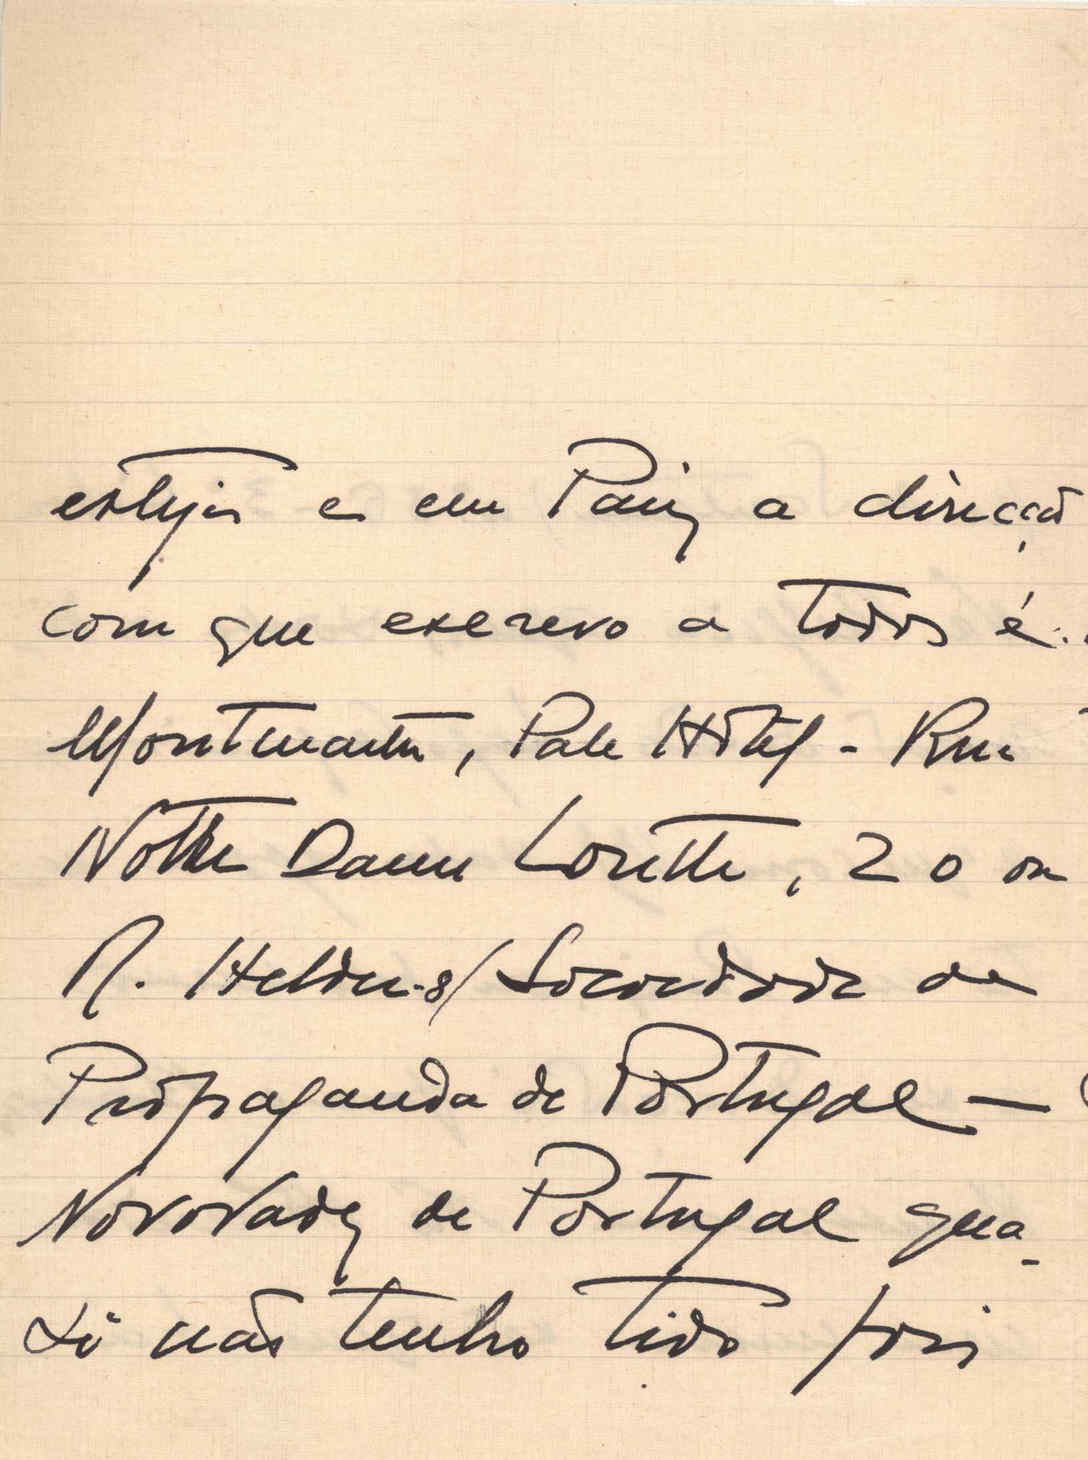 estejas e em Paris a direcção
com que escrevo a todos é:
Montmartre, Pale Hôtel - Rue
Nottre Dame Lorette, 20 ou
R. Helder-8/ Sociedade de
Propaganda de Portugal —
Novidades de Portugal qua-
si não tenho tido pois